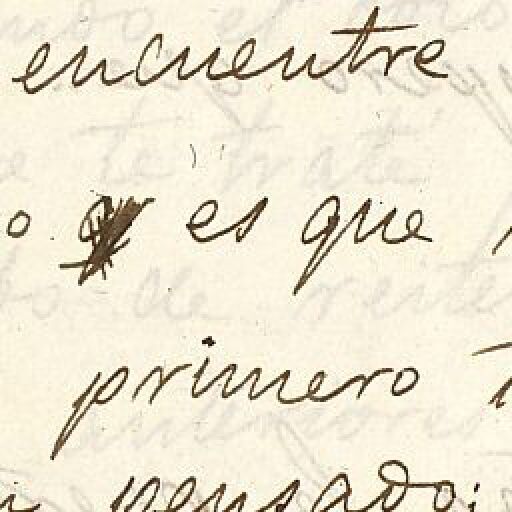 encuentre
o es que
primero
pensado: